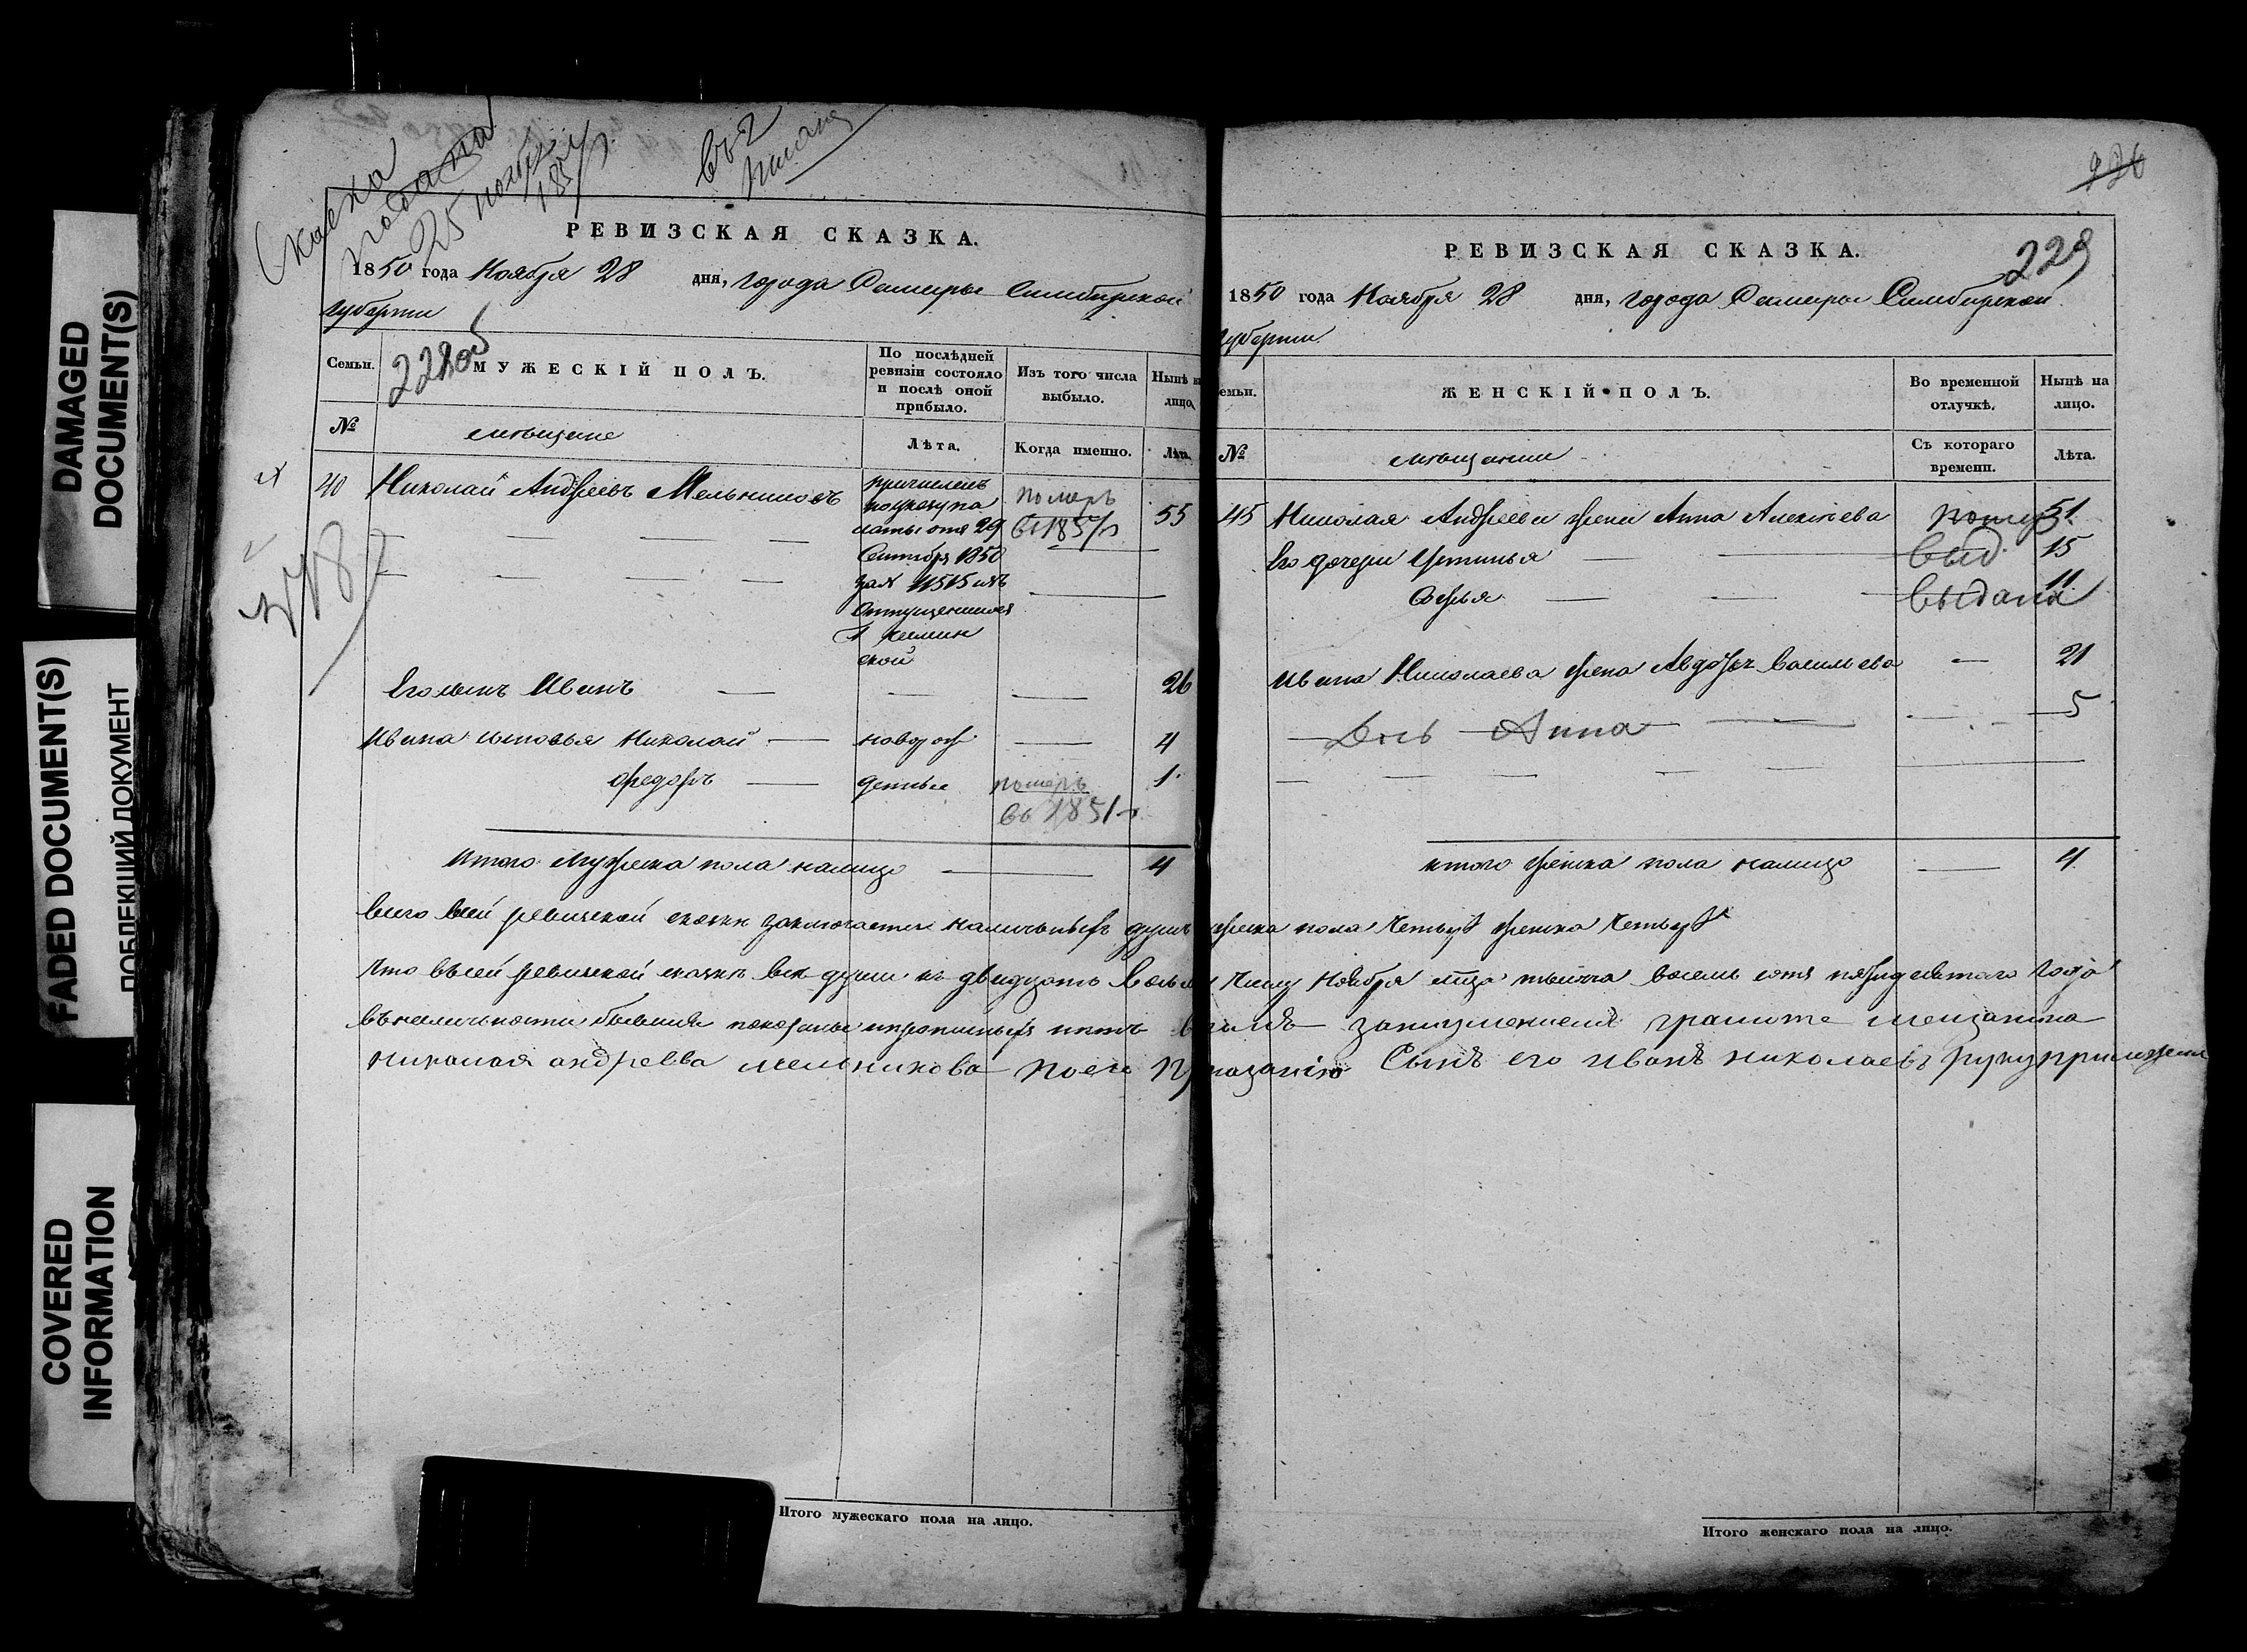 DAMAGED
DOCUMENT(S)
FADED DOCUMENT(S)
ДОКУМЕНТ
COVERED
INFORMATION
Сказка
подана
25 ноября
185
РЕВИЗСКАЯ СКАЗКА.
1850 года Ноября 28 дня, города Самары Симбирской
губернии
Семьи.
МУЖЕСКІЙ ПОЛЪ.
По послѣдней
ревизіи состояло
и послѣ оной
прибыло.
Изъ того числа
выбыло.
Нынѣ
лицо
№
мѣщане
Лѣта.
Когда именно.
Лѣта
40 Николай Андреевъ Мельниковъ
причисленъ
по указу па
латы отъ 29
Сентября 1850
за № 11515 изъ
отпущенников
померъ
въ 185
55
Его сынъ Иванъ 26
Ивана сыновья Николай новорож 4
Федоръ денные померъ 1
въ 1851
Итого Мужеска пола налицо 4
РЕВИЗСКАЯ СКАЗКА.
229
1850 года Ноября 28 дня, города Самары Симбирской
губернии
емьи.
ЖЕНСКІЙ ПОЛЪ.
Во временной
отлучкѣ.
Нынѣ на
лицо.
№
мѣщанки
Съ котораго
времени.
Лѣта.
45 Николая Андреева жена Анна Алексеева 51
Его дочери Устинья выд. 15
Софья выдана 11
Ивана Николаева жена Авдотья Васильева 21
Дочь Анна 5
итого женска пола налицо 4
всего в сей ревизской сказки заключается наличныхъ душъ мужеска пола четыре женска четыре
Что въ сей ревизской сказкѣ все души къ двадцать восьмому числу Ноября мца тысяча восемь сотъ пятидесятаго года
въ наличности бывшия показаны и прописныхъ нѣтъ въ томъ за неумениемъ грамоте мещанина
николая андреева мельникова по его приказанию Сынъ его иванъ николаевъ руку приложилъ
Итого мужескаго пола на лицо.
Итого женскаго пола на лицо.